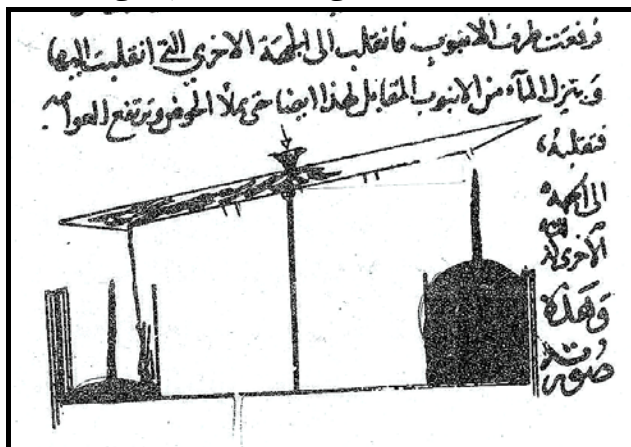 ورفعت طرف الانبوب فانقلب الى الجهة الاخري التي انقلبت اليها
وينزل المآء من الانبوب المقابل لهذا ايضا حتى يملأ الحوض وترتفع العوامه
فتقلبه
الى الجهة
الأخرى
وهذه
صورته